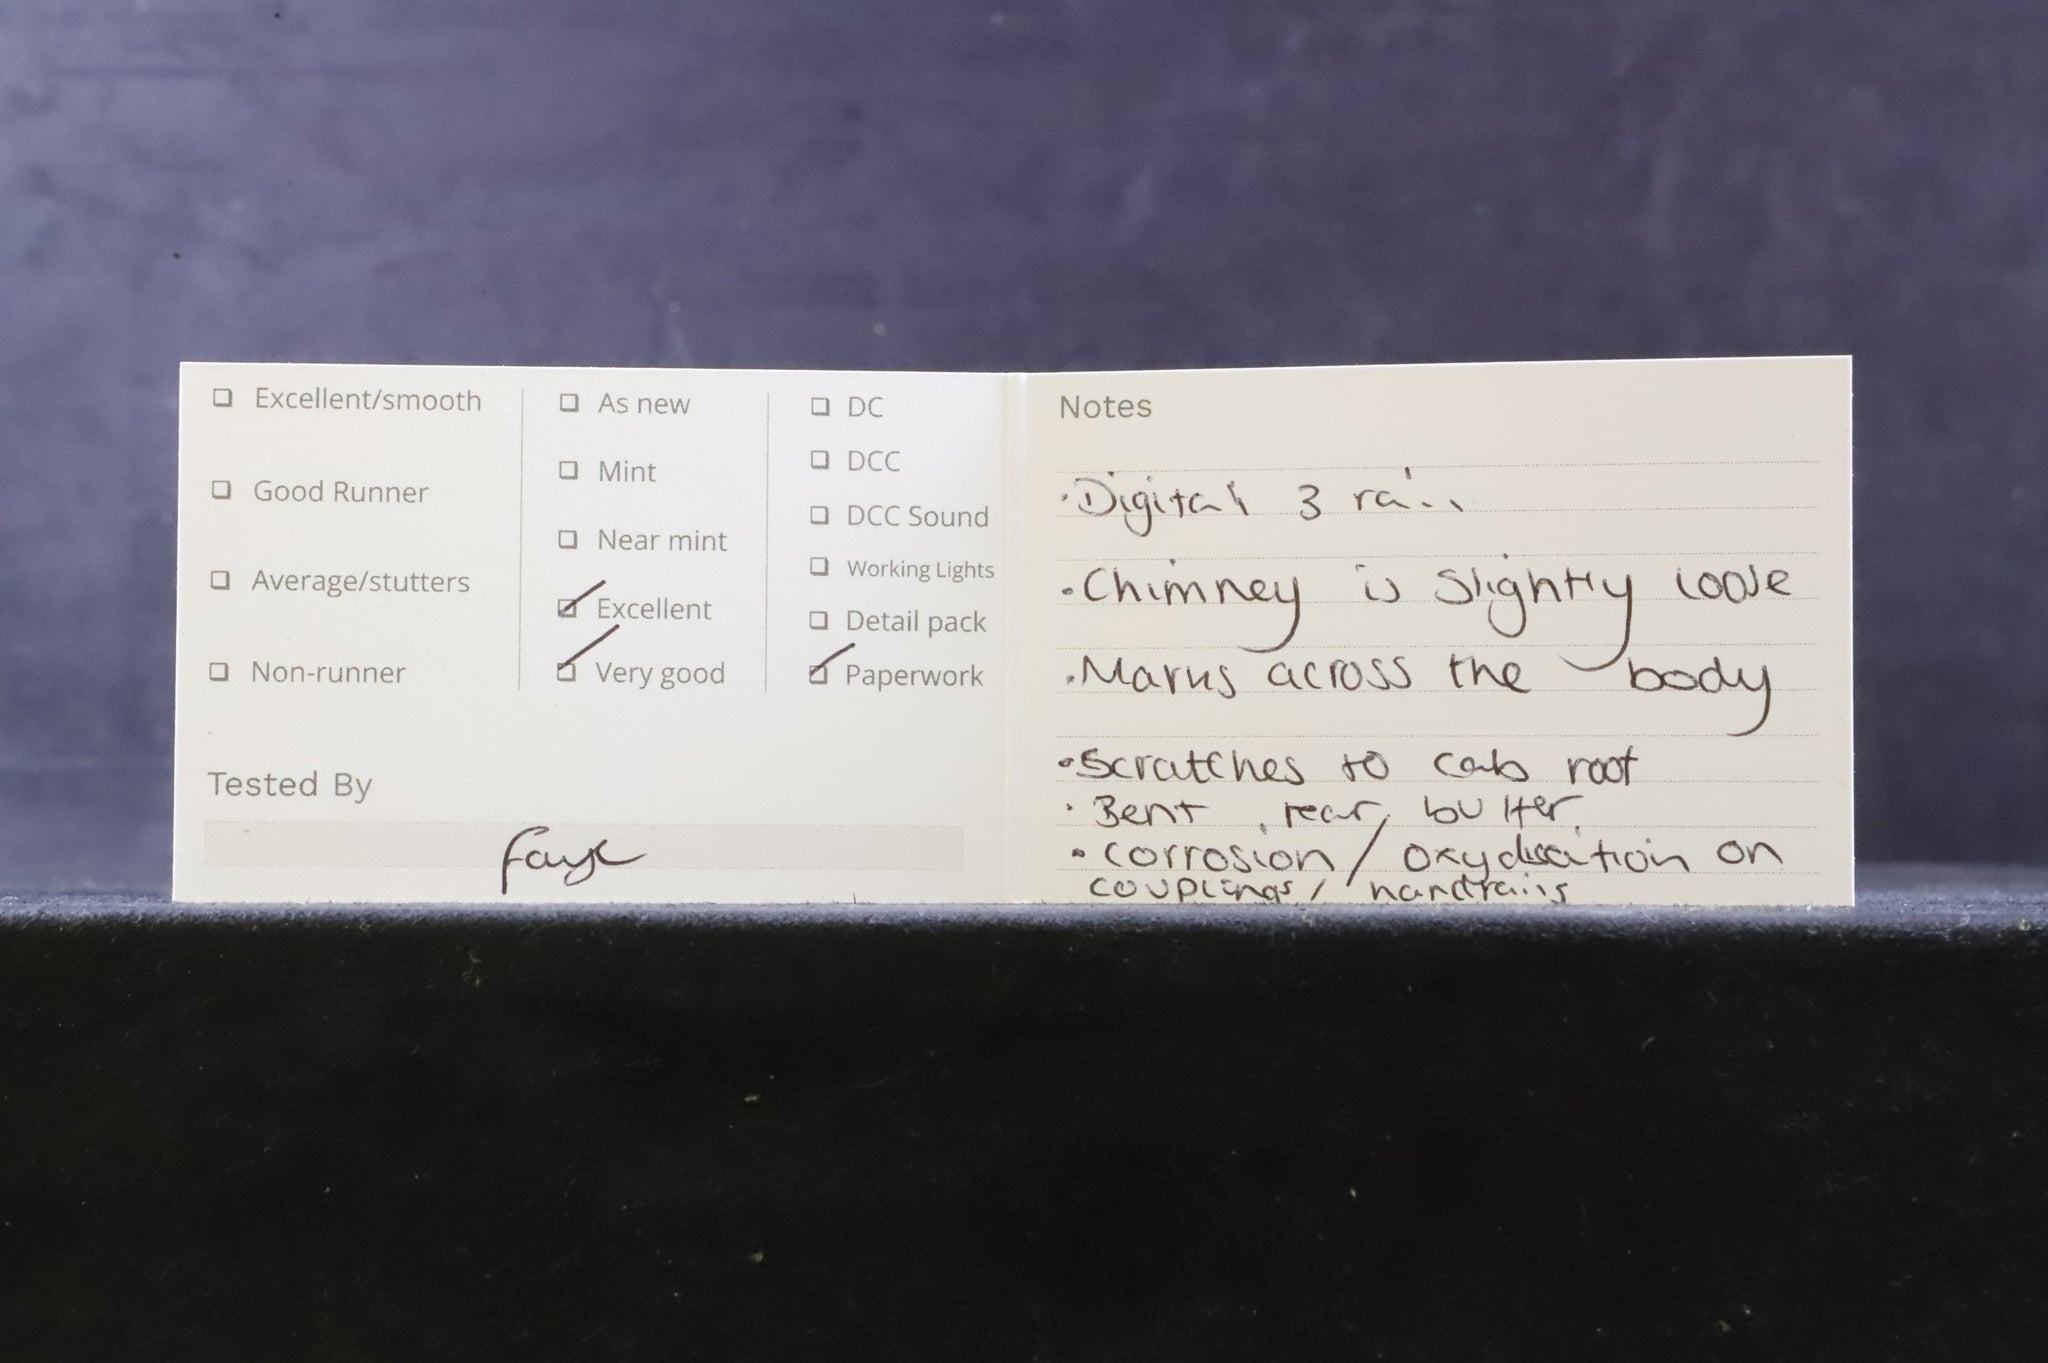 Excellent/smooth
Good Runner
Average/stutters
Non-runner
As new
Mint
Near mint
Excellent
Very good
DC
DCC
DCC Sound
Working Lights
Detail pack
Paperwork
Tested By
Faye
Notes
·Digital 3 rail
·Chimney is slightly loose
·Marks across the body
·Scratches to cab roof
· Bent rear buffer
· corrosion / oxydisation on
couplings / handrails